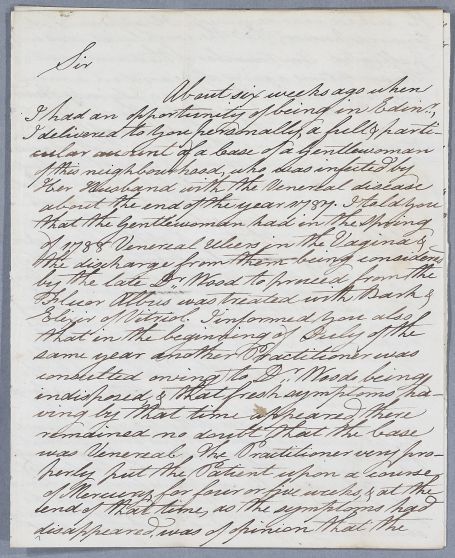 Sir
About six weeks ago when
I had an opportunity of being in Edinr.,
I delivered to you personally, a full & parti-
cular account of a Case of a Gentlewoman
of this neighbourhood, who was infected by
her Husband with the Venereal disease
about the end of the year 1787. I told you
that the Gentlewoman had in the Spring
of 1788 Venereal Ulcers in the Vagina &
the discharge from them being considered
by the late Dr. Wood to proceed from the
Fluor Albus was treated with Bark &
Elixir of Vitriol. I informed you also
that in the beginning of July of the
same year another Practitioner was
consulted owing to Dr. Woods being
indisposed, & that fresh symptoms ha-
ving by that time appeared, there
remained no doubt that the Case
was Venereal. The Practitioner very pro-
perly put the Patient upon a course
of Mercury for four or five weeks, & at the
end of that time, as the symptoms had
disappeared, was of opinion that the